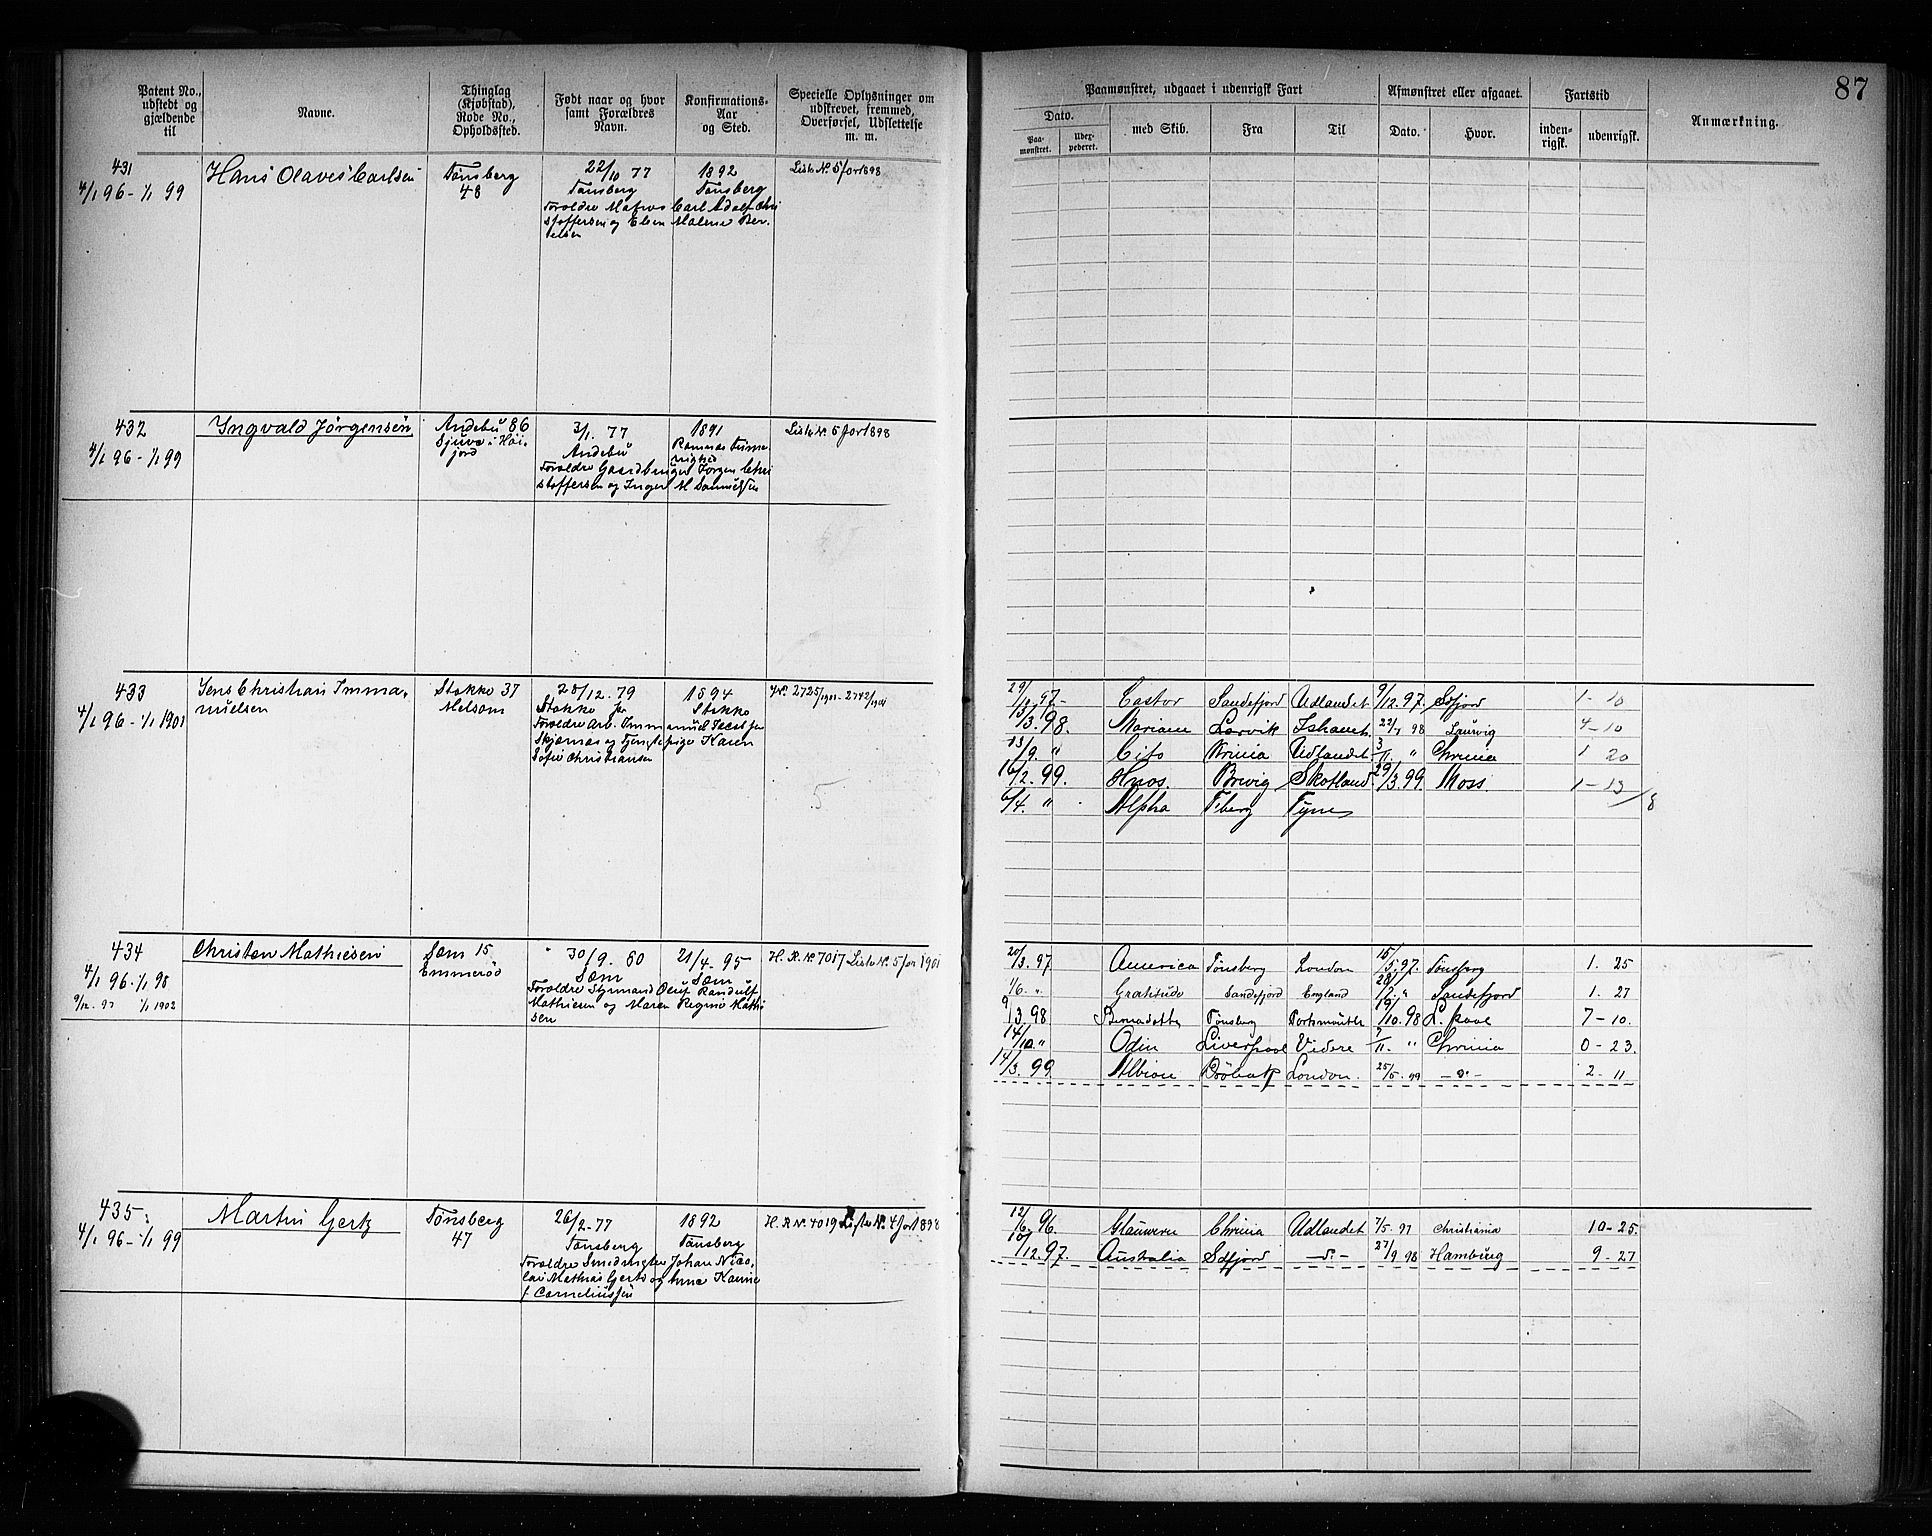 87
Patent No., udstedt og gjældende til
Navne.
Thinglag (Kjøbstad), Rode No., Opholdssted.
Født naar og hvor samt Forældres Navn.
Konfirmations-Aar og Sted.
Specielle Oplysninger om udskrevet, fremmed, Overførsel, Udslettelse m. m.
Paamønstret, udgaaet i udenrigsk Fart
Afmønstret eller afgaaet.
Fartstid
Anmærkning.
Dato.
Paa-mønstret.
Udex-pederet.
med Skib.
Fra
Til
Dato.
Hvor.
inden-rigsk.
udenrigsk.
431
4/1 96 - 1/1 99
Hans Olaves Carlsen
Tønsberg
48
22/10 77
Tønsberg
Forældre Matros Carl Adolf Chri
stoffersen og Elen Malene Ber-
telsen
1892
Tønsberg
Liste No. 5 for 1898
432
4/1 96 - 1/1 99
Yngvald Jørgensen
Andebu 86
Sjuve i Høi-
jord
3/1. 77
Andebu
Forældre Gaardbruger Jørgen Chri
stoffersen og Inger M Samuelsen
1891
Ramnæs
Liste No. 5 for 1898
433
4/1 96 - 1/1 1901
Jens Christian Imma-
nuelsen
Stokke 37
Melsom
28/12. 79
Stokke
Forældre Arb. Immanuel
Skjærnæs og Tjenstepige Karen
Sofie Christiansen
1894
Stokke
No. 2725/1901 - 2742/1901
5
29/ 97 - Castor Sandefjord Udlandet 9/12 97. Sdfjord 1 - 10
/3. 98. Mariane Larvik Ishavet 22/ 98 Laurvig 4 - 10
13/9. " Cito Krinia Udlandet 3/11. " Chrinia 1 20
16/2. 99. Brevig Skotland 29/3. 99. Moss. 1 - 13
6/4. " Alpha T'berg Tyne
8
434
4/1 96 - 1/1 98
9/12. 97 1/1 1902
Christen Mathiesen
Sem 15
Emmerød
30/9. 80
Sæm
Forældre Styrmand Oluf Randulf
Mathiesen og Maren Regine Mathi
sen
21/4. 95
Sæm
H. R. No 7017 Liste No. 5 for 1901
20/3. 97 America Tønsberg London 15/5. 97. Tønsberg 1. 25
1/6. " Gratitude Sandefjord England 28/7. " Sandefjord 1. 27
9/3. 98 Bernadotte Tønsberg Portsmouth 19/10. 98 L. pool 7 - 10.
14/10. " Odin Liverpool Videre 7/11. " Chrinia 0 - 23.
14/3. 99 Albion Drøbak London. 25/5. 99 - " - 2 - 11
435
4/1 96 - 1/1 99
Martin Gertz
Tønsberg
47
26/2. 77
Tønsberg
Forældre Smedmester Johan Nico-
lai Mathias Gertz og Anna Karine
f Corneliussen
1892
Tønsberg
H. R. No. 4019 Liste No. 4 for 1898
12/6. 96. Chrinia Udlandet 7/5. 97 Christiania 10 - 25.
10/12. 97. Australia Sdfjord - " - 27/9. 98 Hamburg 9 - 27